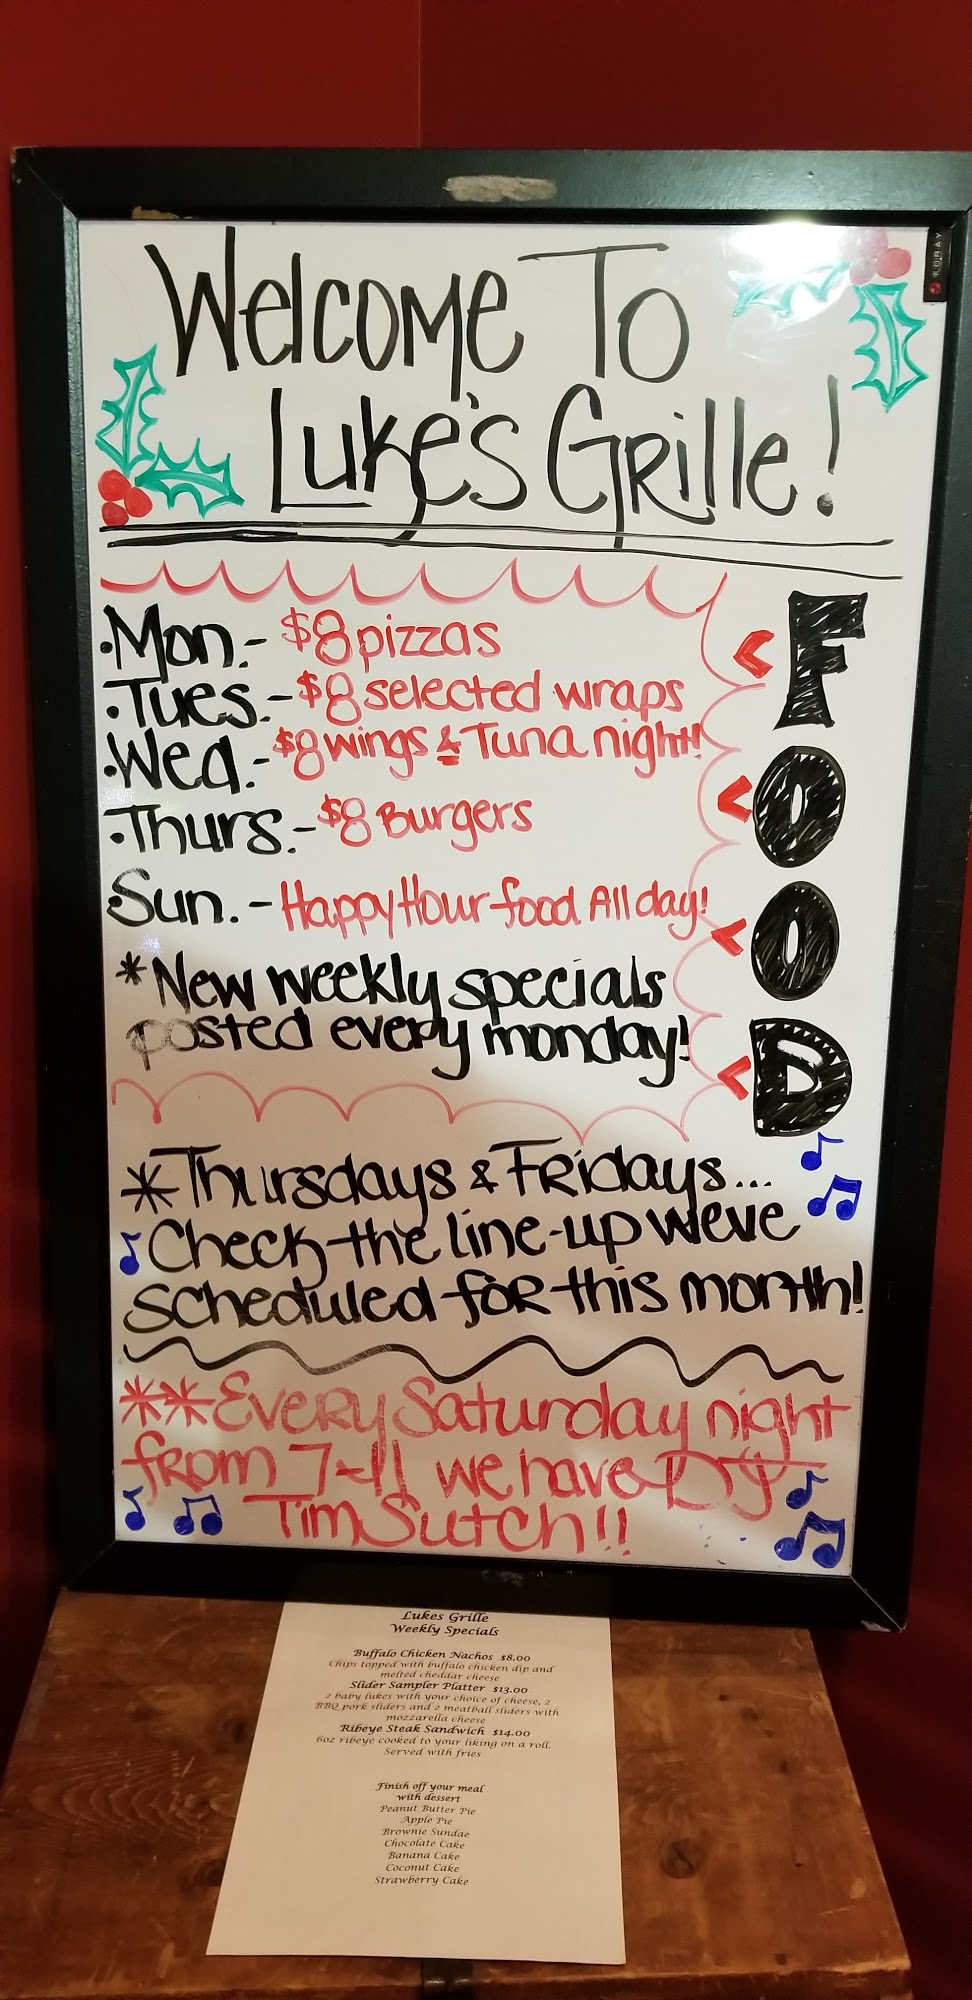 FORAY
Welcome To
Luke's Grille!
•Mon.- $8 pizzas
•Tues.- $8 selected wraps
•Wed.- $8 wings & Tuna night!
•Thurs.- $8 Burgers
Sun. - Happy Hour food All day!
*New weekly specials
posted every monday!
FOOD
*Thursdays & Fridays...
Check the line-up weve
scheduled for this month!
**Every Saturday night
from 7-11 we have DJ
Tim Sutch!!
Lukes Grille
Weekly Specials
Buffalo Chicken Nachos $8.00
Chips topped with buffalo chicken dip and
melted cheddar cheese
Slider Sampler Platter $13.00
2 baby lukes with your choice of cheese, 2
BBQ pork sliders and 2 meatball sliders with
mozzarella cheese
Ribeye Steak Sandwich $14.00
6oz ribeye cooked to your liking on a roll.
Served with fries
Finish off your meal
with dessert
Peanut Butter Pie
Apple Pie
Brownie Sundae
Chocolate Cake
Banana Cake
Coconut Cake
Strawberry Cake